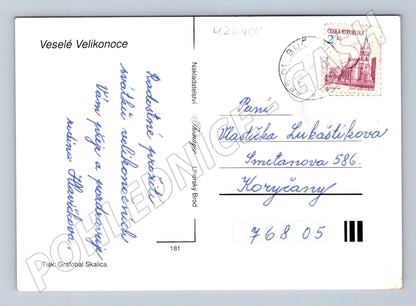 Veselé Velikonoce
424400
Radostné prožití
svátků velikonočních
Vám přeje a pozdravuje
rodina Hlavičkova.
181
Tisk: Grafobal Skalica
Nakladatelství
Uherský Brod
ČESKÁ REPUBLIKA
2 Kč
Paní
Vlastička Lukáštíková
Smetanova 586.
Koryčany
768 05
POHLEDNICE-GASH